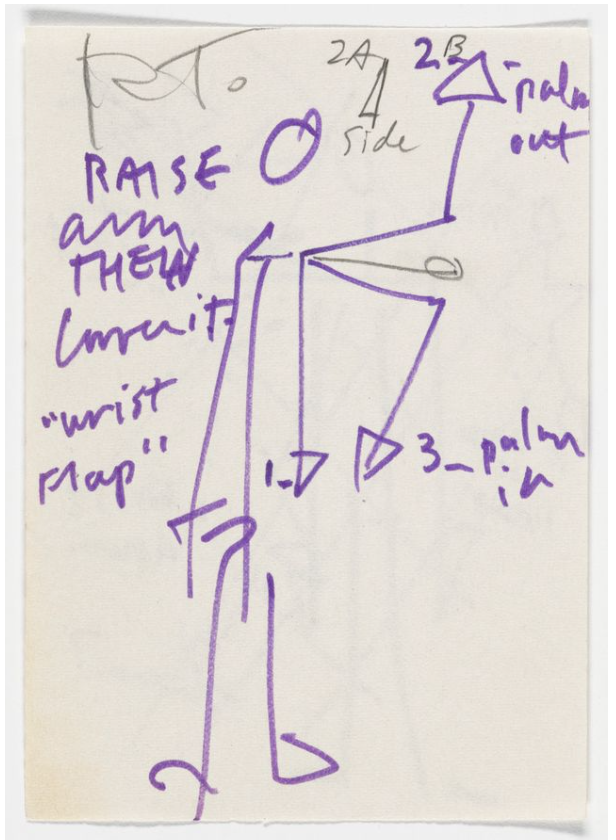 RT.
2A
side
2B
palm
out
RAISE
arm
THEN
Lower it
"wrist
Flap"
1-
3- palm
in